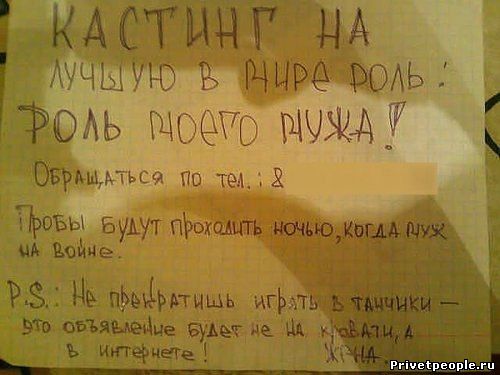 КАСТИНГ НА
ЛУЧШУЮ В МИРЕ РОЛЬ:
РОЛЬ МОЕГО МУЖА!
ОБРАЩАТЬСЯ ПО ТЕЛ.: 8
ПРОБЫ БУДУТ ПРОХОДИТЬ НОЧЬЮ, КОГДА МУЖ
НА ВОЙНЕ.
P.S.: НЕ ПРЕКРАТИШЬ ИГРАТЬ В ТАНЧИКИ —
ЭТО ОБЪЯВЛЕНИЕ БУДЕТ НЕ НА КРОВАТИ, А
В ИНТЕРНЕТЕ! ЖЕНА.
Privetpeople.ru